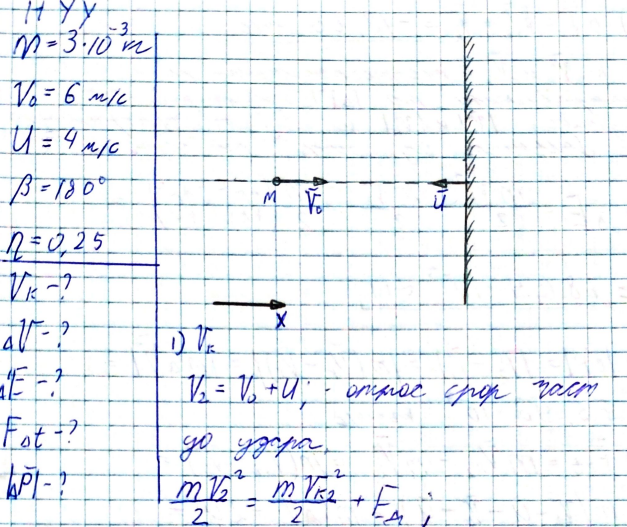 Н У У
m = 3·10⁻³ т
V₀ = 6 м/с
U = 4 м/с
β = 180°
η = 0,25
Vк - ?
ΔV - ?
ΔE - ?
FΔt - ?
|ΔP̄| - ?
m V̄₀ Ū
x
1) Vк
V₂ = V₀ + U; - относ скор част
до удара.
mV₂²/2 = mVк₂²/2 + EΔ;